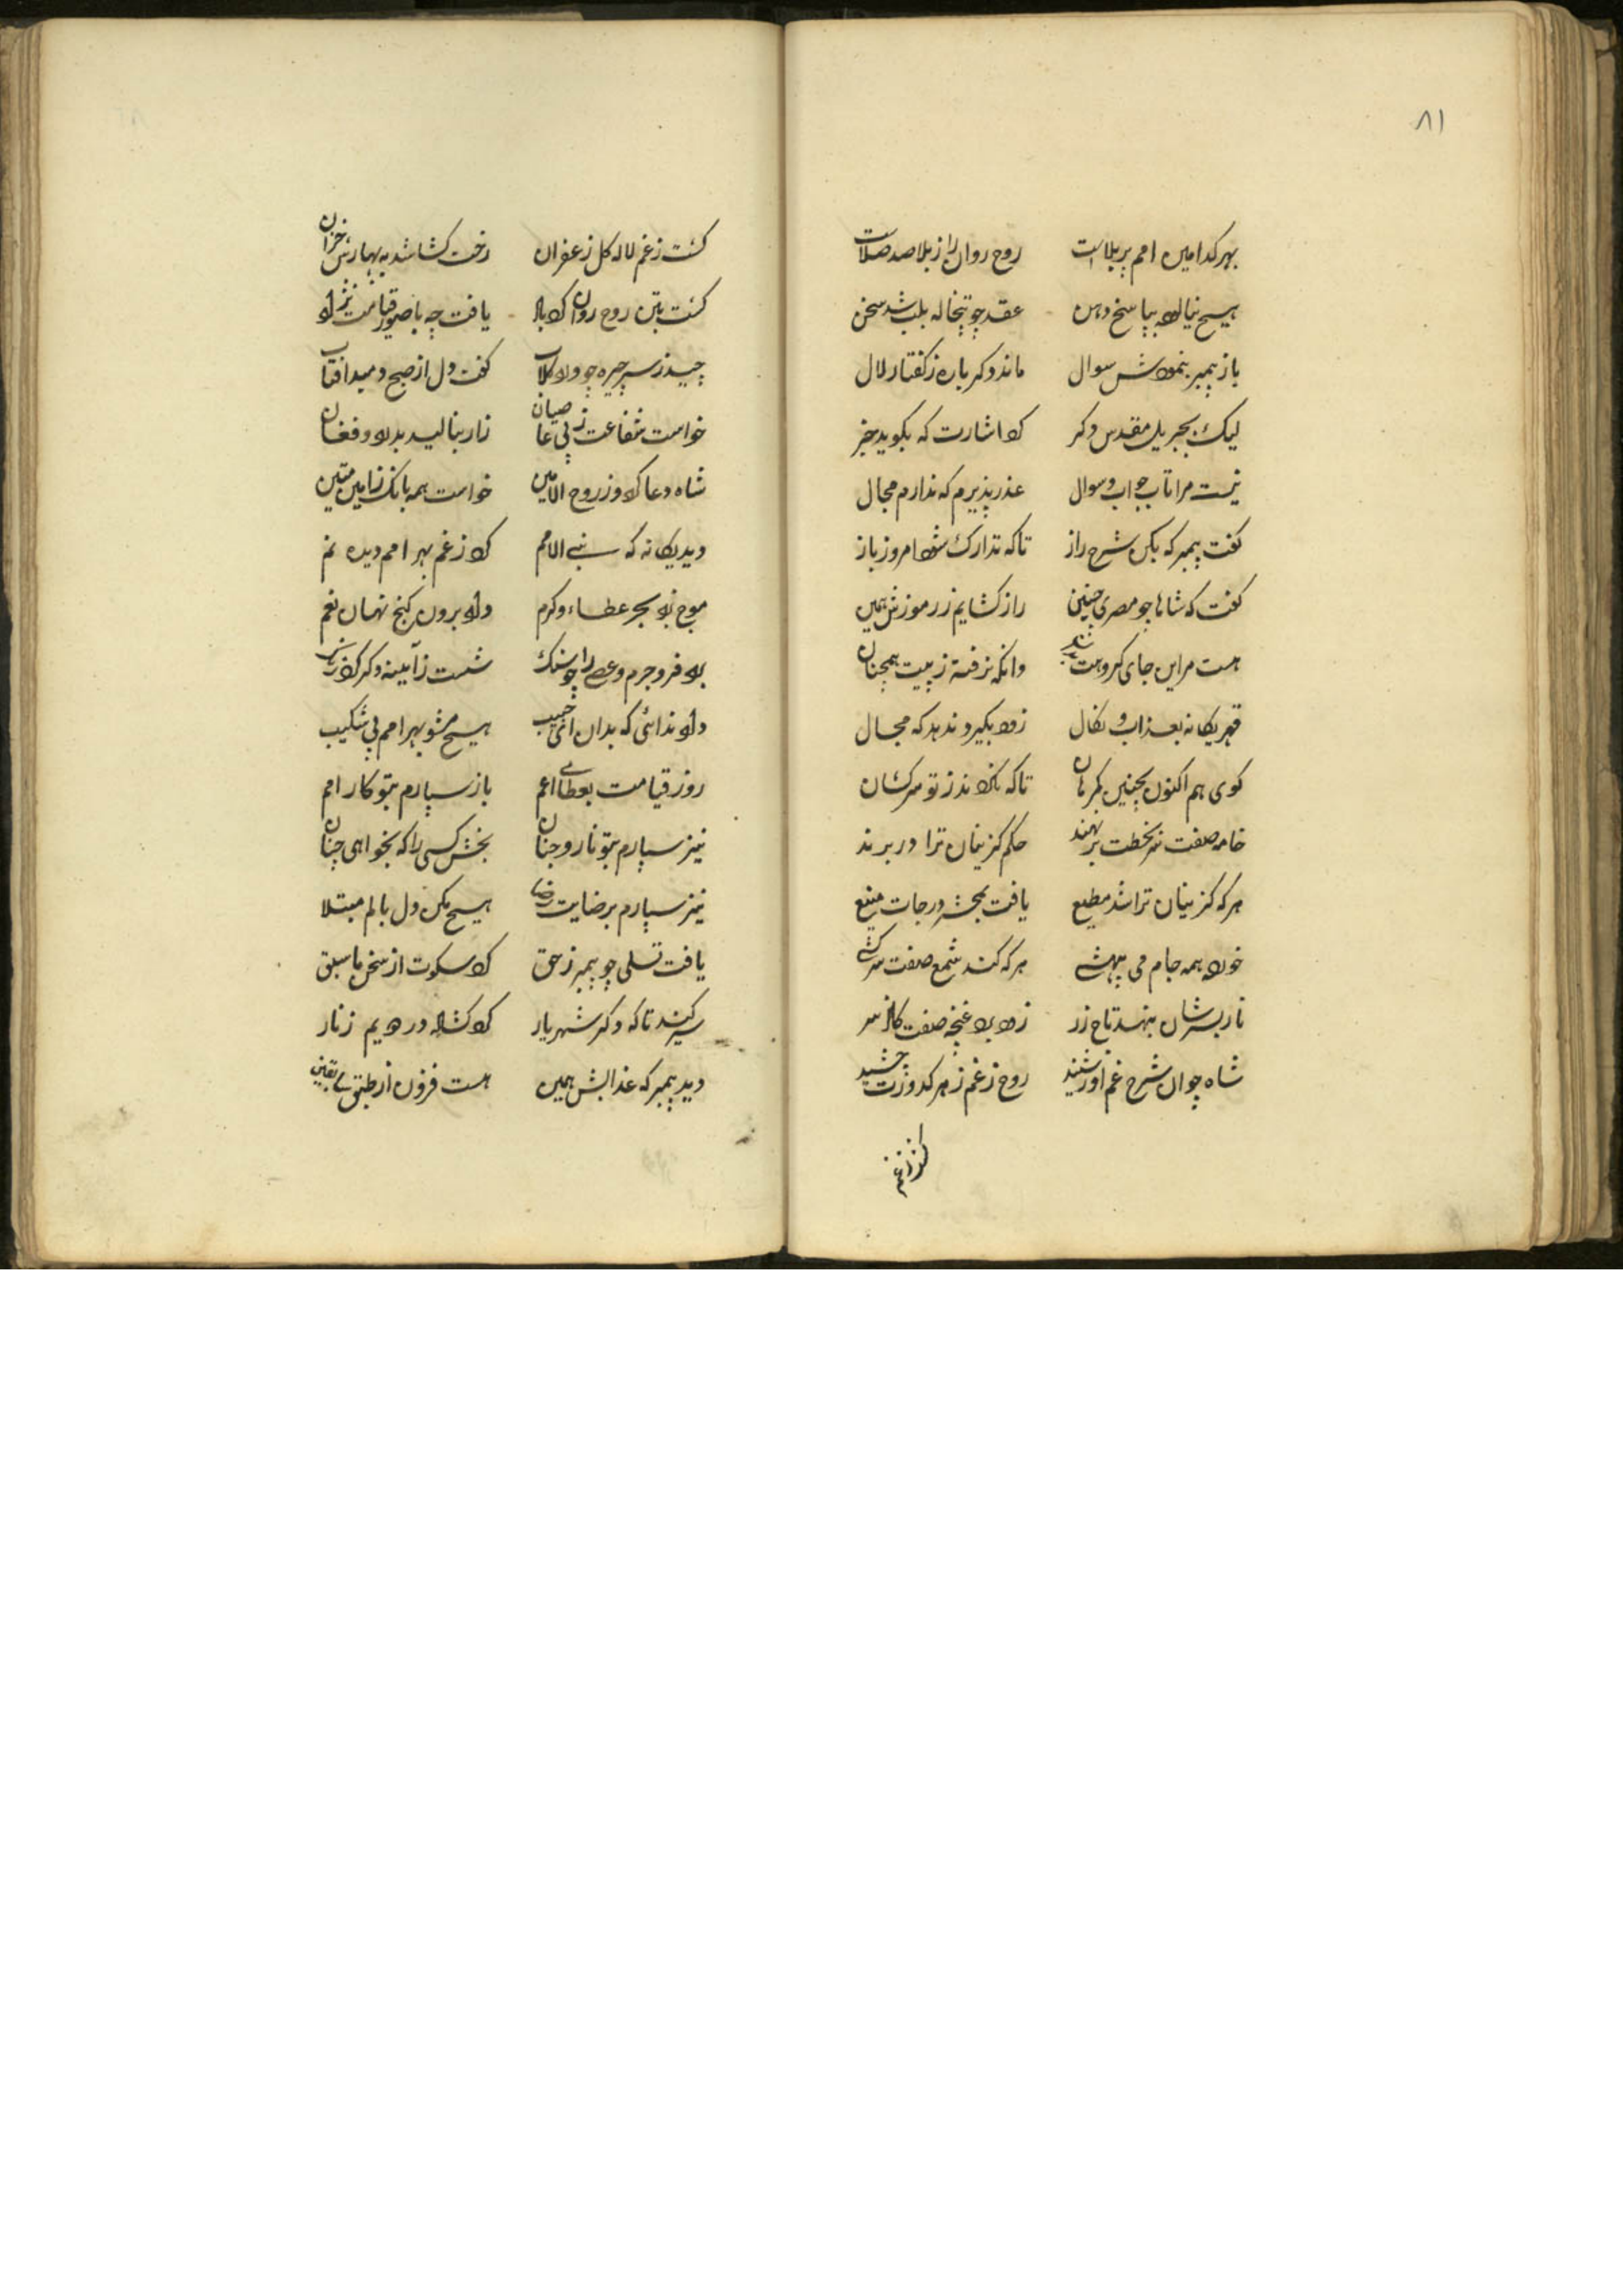 ۸۱
بهر کدامین امم پر بلاست روح روان را ز بلا صد صلاست
هیچ نیالود بپاسخ دهن عقد چو تبخاله بلب شد سخن
باز پیمبر بنمودش سوال ماند دکر باره ز کفتار لال
لیک بجبریل مقدس دکر کرد اشارت که بکوید خبر
نیست مرا تاب جواب و سوال عذر پذیرم که ندارم مجال
کفت پیمبر که بکن شرح راز تا که تدارک شود امروز باز
کفت که شاها چو مصری چنین راز کشایم ز رموزش همین
هست مر این جای کروهت وانکه نرفته ز پیت همچنان
قهر یکانه بعذاب و نکال زود بگیرد ندهد که مجال
کوی هم اکنون بچنین کمرهان تا که نکردند ز تو سرکشان
خامه صفت سر بخطت بر نهند حکم کزینان ترا در برند
هر که کزینان ترا شد مطیع یافت بمحشر درجات منیع
خورد همه جام می بیهشی هر که کند شمع صفت سرکشی
نار بسرشان بنهد تاج زر زود برد غنچه صفت کاز سر
شاه چو ان شرح غم اور شنید روح ز غم زهر کدورت چشید
کشت ز غم
کشت ز غم لاله کل زعفران رخت کشا شد به بهارش خزان
کشت بتن روح روان کرد یافت چه با صور قیامت
چید ز سر چیره چو ورد کلاب کفت دل از صبح دمید افتاب
خواست شفاعت ز پی عاصیان زار بنالید بدرد و فغان
شاه دعا کرد و ز روح الامین خواست همه بانک ز امین متین
دید یکانه که نبی الامم کرد ز غم بهر امم دیده نم
موج زد بحر عطاء و کرم داد برون کنج نهان نعم
برد فر و جرم و عصی را چو سنک شست ز آیینه دکر کرد زنک
داد ندائی که بدان ای حبیب هیچ مشو بهر امم بی شکیب
روز قیامت بعطای اعم باز سپارم بتو کار امم
نیز سپارم بتو نار و جنان بخش کسی را که بخواهی چنان
نیز سپارم برضایت رضا هیچ مکن دل بالم مبتلا
یافت تسلی چو پیمبر ز حق کرد سکوت از سخن ما سبق
سیر کند تا که دکر شهریار کرد کشاده در دویم ز نار
دید پیمبر که عذابش همین هست فزون از طبق یقین